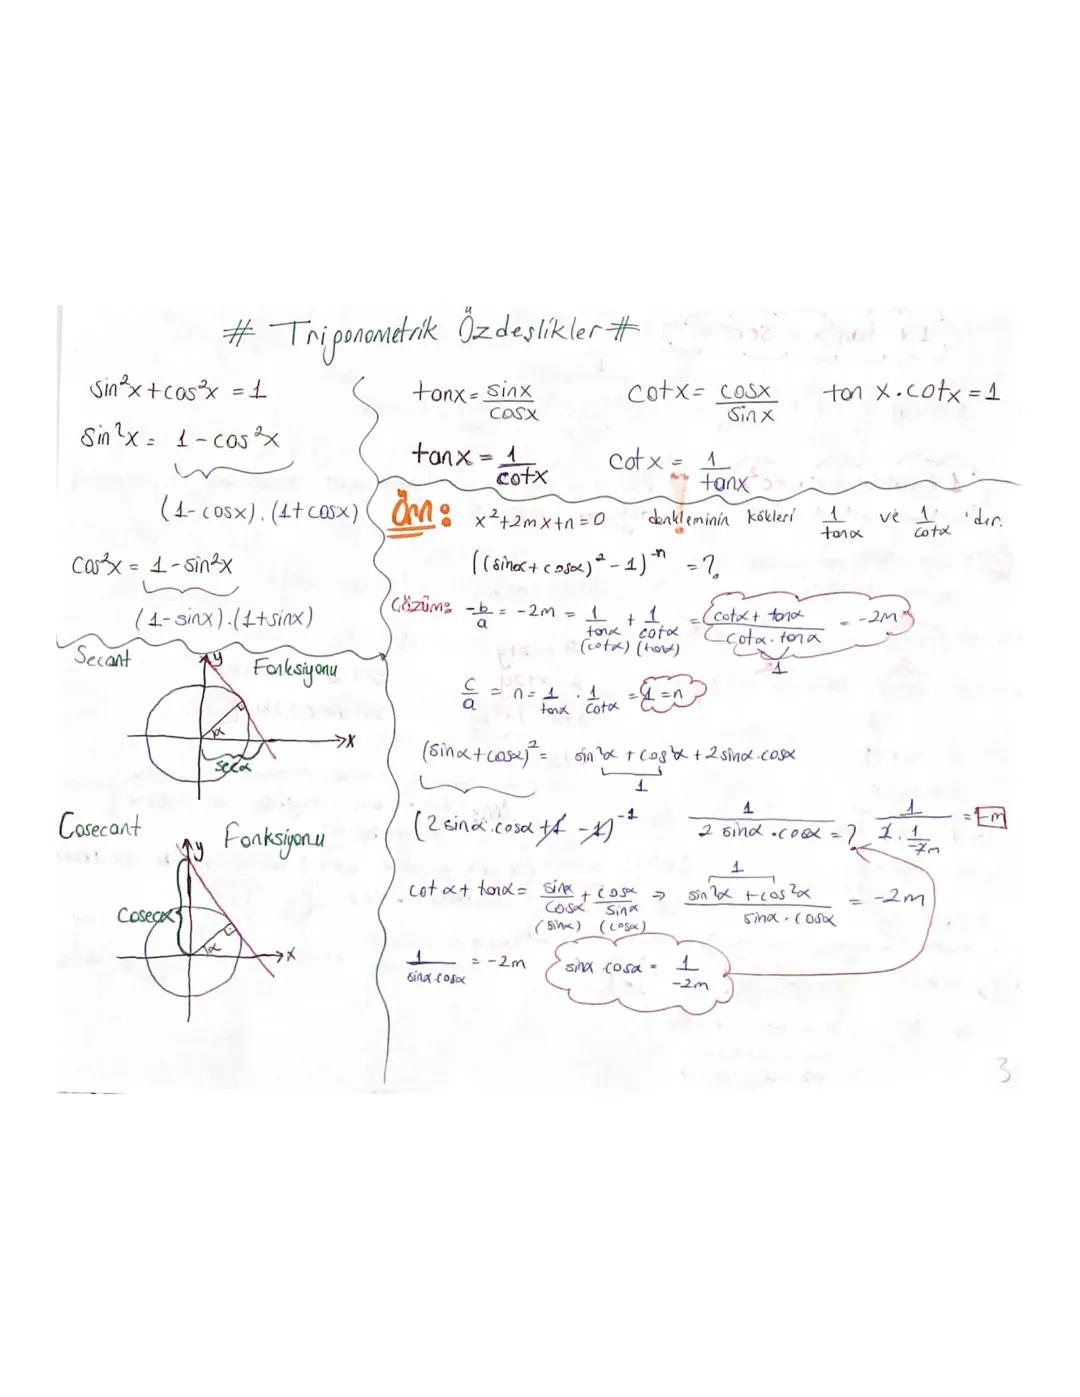 # Trigonometrik Özdeşlikler #
sin²x + cos²x = 1
sin²x = 1 - cos²x
(1 - cosx) . (1 + cosx)
cos²x = 1 - sin²x
(1 - sinx) . (1 + sinx)
tanx = sinx / cosx
cotx = cosx / sinx
tan x . cotx = 1
tanx = 1 / cotx
cotx = 1 / tanx
Secant Fonksiyonu
y
α
x
secα
Cosecant Fonksiyonu
y
Cosecα
α
x
Örn: x² + 2mx + n = 0 denkleminin kökleri 1/tanα ve 1/cotα 'dır.
((sinα + cosα)² - 1)⁻ⁿ = ?
Çözüm: -b/a = -2m = 1/tanα + 1/cotα = (cotα + tanα)/(cotα . tanα) = -2m
(cotα) (tanα)
1
c/a = n = 1/tanα . 1/cotα = 1 = n
(sinα + cosα)² = sin²α + cos²α + 2 sinα . cosα
1
(2 sinα . cosα + 1 - 1)⁻¹ 1/(2 sinα . cosα) = ? 1/(2 . 1/-2m) = -m
cotα + tanα = sinα/cosα + cosα/sinα → (sin²α + cos²α)/(sinα . cosα) = -2m
1
(sinα) (cosα)
1/(sinα . cosα) = -2m sinα . cosα = 1/-2m
3